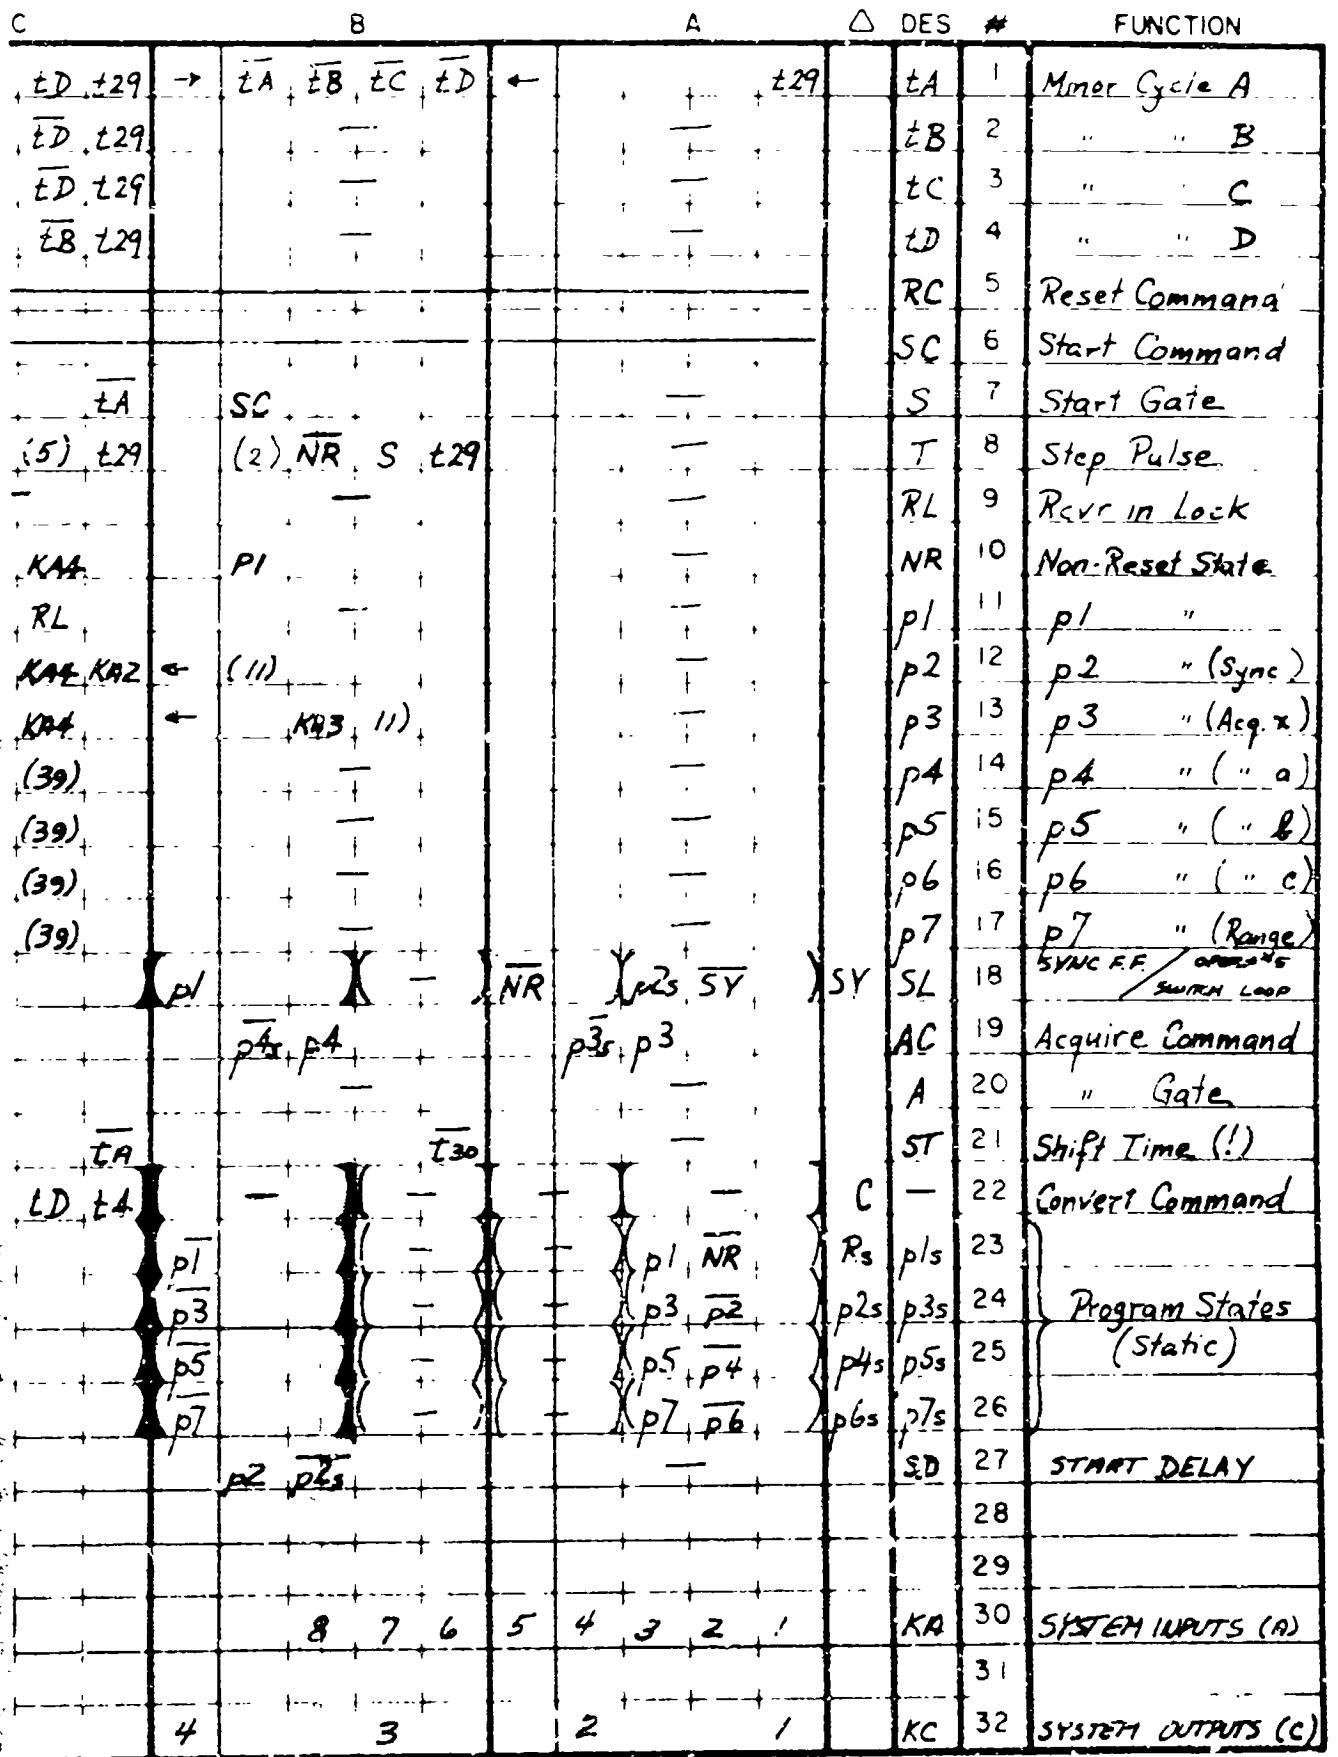 C B A △ DES # FUNCTION
tD t29 → t̅A̅ t̅B̅ t̅C̅ t̅D̅ ← t29 tA 1 Minor Cycle A
t̅D̅ t29 — — tB 2 " " B
t̅D̅ t29 — — tC 3 " " C
t̅B̅ t29 — — tD 4 " " D
RC 5 Reset Command
SC 6 Start Command
t̅A̅ SC — S 7 Start Gate
(5) t29 (2) N̅R̅ S t29 — T 8 Step Pulse
— — — RL 9 Rcvr in Lock
KA4 P1 — NR 10 Non-Reset State
RL — — p1 11 p1 "
KA4 KA2 ← (11) — p2 12 p2 " (Sync)
KA4 ← KA3 11) — p3 13 p3 " (Acq. x)
(39) — — p4 14 p4 " ( " a)
(39) — — p5 15 p5 " ( " b)
(39) — — p6 16 p6 " ( " c)
(39) — — p7 17 p7 " (Range)
p1 — N̅R̅ p2s S̅Y̅ SY SL 18 SYNC F.F. / SWITCH LOOP
p̅4̅s̅ p4 p̅3̅s̅ p3 AC 19 Acquire Command
— — A 20 " Gate
t̅A̅ t̅3̅0̅ — ST 21 Shift Time (!)
tD t4 — — — C — 22 Convert Command
p̅1̅ — — p1 N̅R̅ Rs p1s 23
p̅3̅ — — p3 p̅2̅ p2s p3s 24 Program States
(Static)
p̅5̅ — — p5 p̅4̅ p4s p5s 25
p̅7̅ — — p7 p̅6̅ p6s p7s 26
p2 p̅2̅s̅ — SD 27 START DELAY
28
29
8 7 6 5 4 3 2 1 KA 30 SYSTEM INPUTS (A)
31
4 3 2 1 KC 32 SYSTEM OUTPUTS (C)